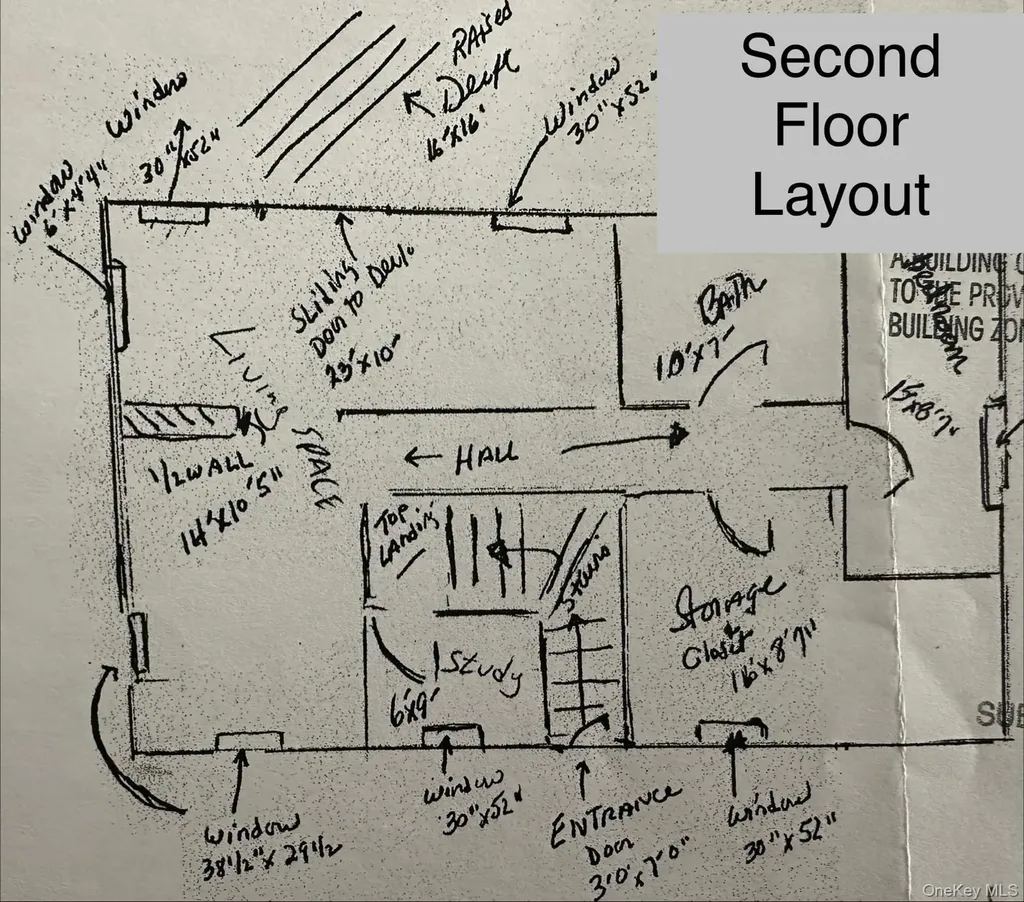 Second
Floor
Layout
RAISED
Deck
16'X16'
Window
30"X52"
Window
30"X52"
Window
6'X4'4"
Sliding
Door to Deck
23'X10'
BATH
10'X7'
A BUILDING
TO THE
BUILDING ZON
Bedroom
15X8'7"
LIVING
SPACE
1/2 WALL
14'X10'5"
HALL
TOP
LANDING
Stairs
Study
6'X9'
Storage
&
Closet
16'X8'7"
SUB
Window
38 1/2" X 29 1/2
Window
30"X52"
ENTRANCE
Door
3'0"X7'0"
Window
30"X52"
OneKey MLS